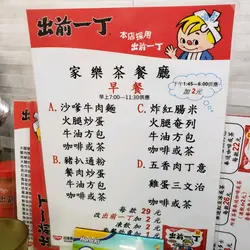 出前一丁
本店採用
出前一丁
家樂茶餐廳
早餐
早上7:00—11:30供應
下午1:45—6:00供應
加2元
A. 沙爹牛肉麵
火腿炒蛋
牛油方包
咖啡或茶
B. 豬扒通粉
餐肉炒蛋
牛油方包
咖啡或茶
C. 炸紅腸米
火腿奄列
牛油方包
咖啡或茶
D. 五香肉丁意
雞蛋三文治
咖啡或茶
每款29元
改出前一丁加
出前一丁